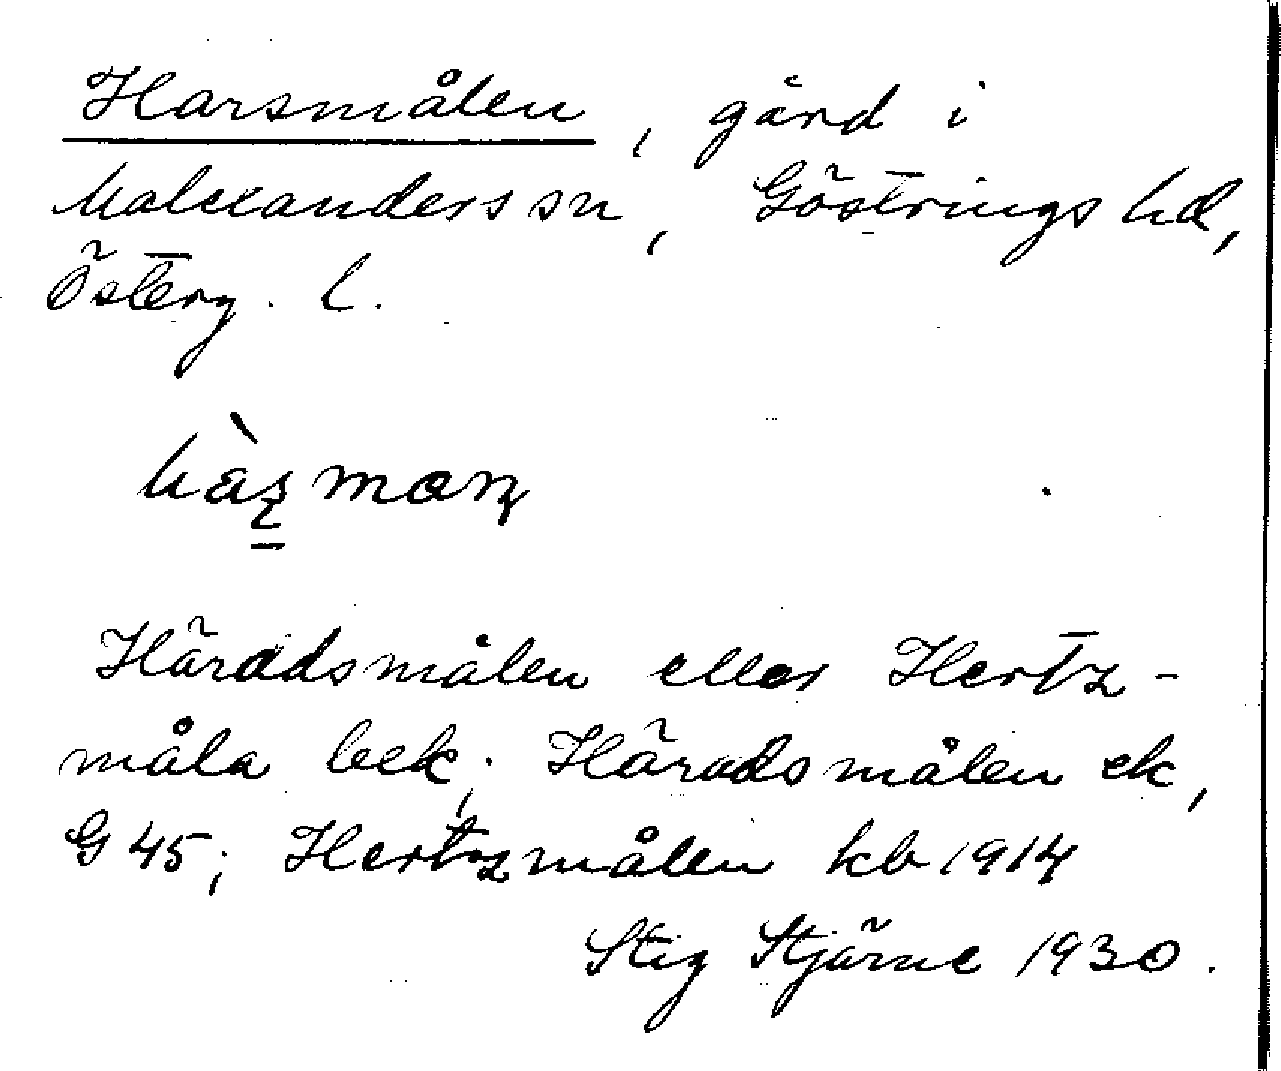 Harsmålen, gård i
Malexanders sn, Göstrings hd,
Österg. l.
Häradsmålen eller Hertz-
måla bek; Häradsmålen ek,
G 45; Hertzmålen kb 1914
Stig Stjärne 1930.